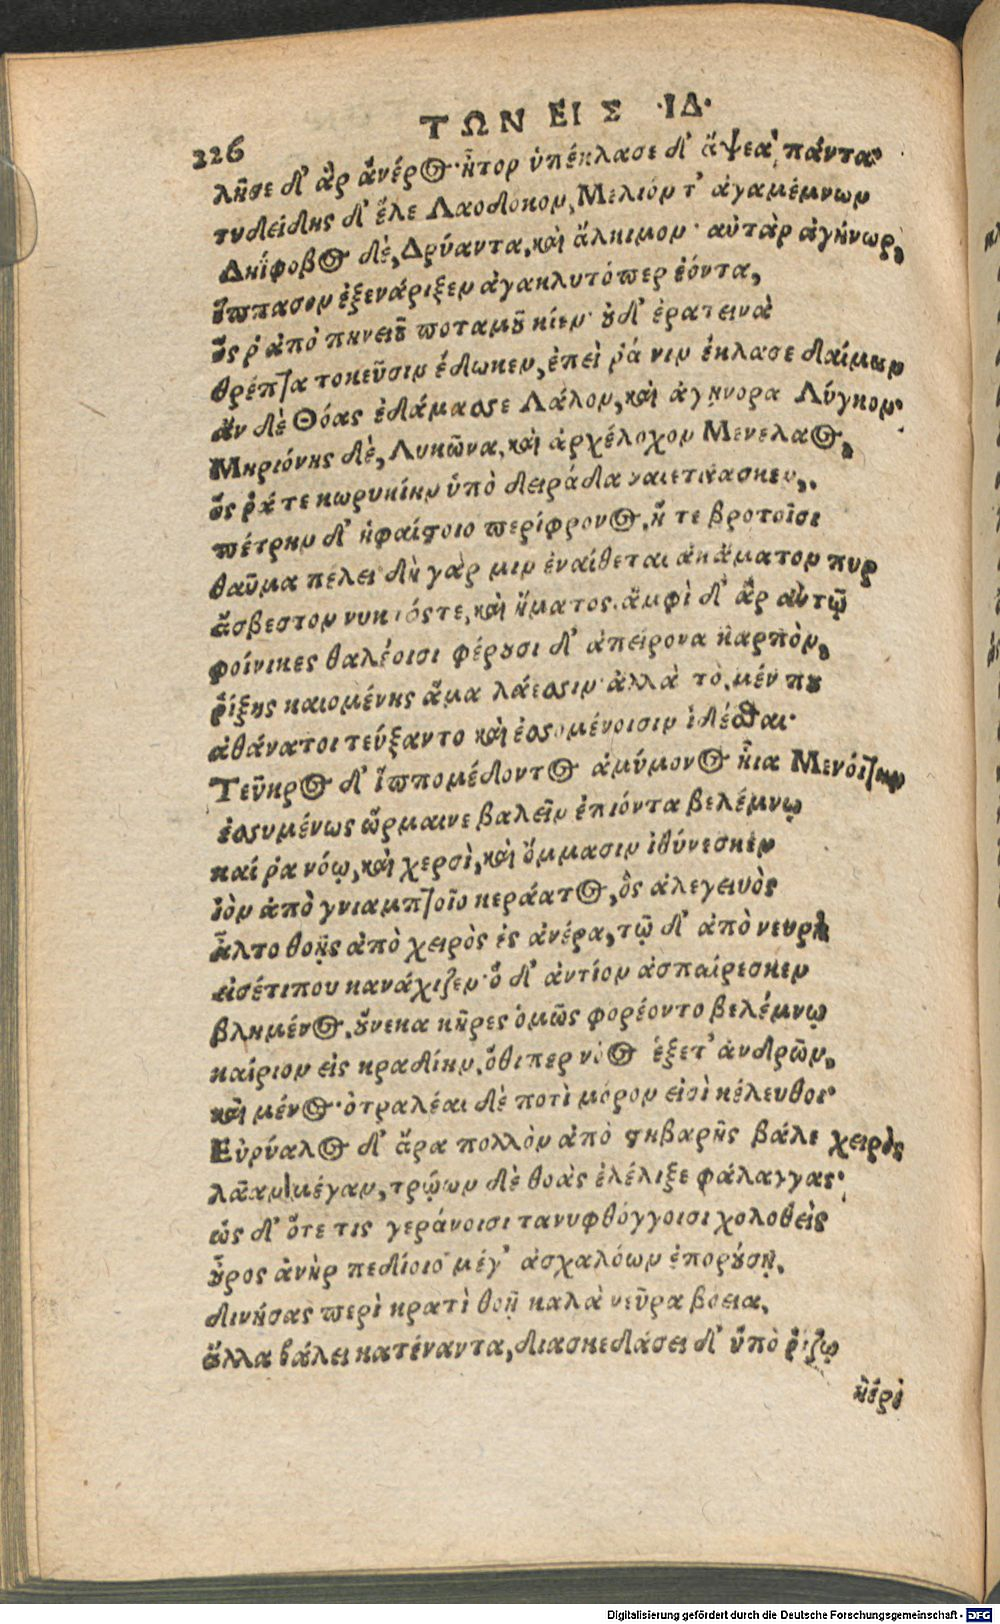 226
ΤΩΝ ΕΙΣ ·ΙΔ·
λῆσε δ' ἂρ ἀνέρος· ἦτορ ὑπέκλασε δ' ἅψεα πάντα·
τυδείδης δ' ἕλε Λαοδοκον, Μελιόν τ' ἀγαμέμνων
Δηΐφοβος δὲ, Δρύαντα, καὶ ἄλκιμον· αὐτὰρ ἀγήνωρ,
ἵππασον ἐξενάριξεν ἀγακλυτόπερ ἐόντα,
ὅς ῥ ἀπὸ πηνειοῦ ποταμοῦ κίεν· οὐδ' ἐρατεινὰ
θρέπτα τοκεῦσιν ἔδωκεν, ἐπεὶ ῥά νιν ἔκλασε δαίμων
ἂν δὲ Θόας ἐδάμασσε Λάλον, καὶ ἀγήνορα Λύγκον·
Μηριόνης δὲ, Λυκῶνα, καὶ ἀρχέλοχον Μενελαος,
ὅς ῥά τε κωρυκίην ὑπὸ δειράδα ναιετάασκεν,
πέτρην δ' ἡφαίστοιο περίφρονος, ἥ τε βροτοῖσι
θαῦμα πέλει δὴ γάρ μιν ἐναίθεται ἀκάματον πυρ
ἄσβεστον νυκτός τε, καὶ ἤματος. ἄμφὶ δ' ἂρ αὐτῷ
φοίνικες θαλέοισι φέρουσι δ' ἀπείρονα καρπὸν,
ῥίξης καιομένης ἅμα λάεσσιν· ἀλλὰ τὸ μέν που
ἀθάνατοι τεύξαντο καὶ ἐσσομένοισιν ἰδέσθαι·
Τεῦκρος δ' ἱππομέδοντος ἀμύμονος ἧια Μενόιτην
ἐσσυμένως ὥρμαινε βαλεῖν ἐπιόντα βελέμνῳ
καί ῥα νόῳ, καὶ χερσὶ, καὶ ὄμμασιν ἰθύνεσκεν
ἰὸν ἀπὸ γνιαμπτοῖο κεράατος, ὃς ἀλεγεινὸς
ἆλτο θοῆς ἀπὸ χειρὸς ἐς ἀνέρα, τῷ δ' ἀπὸ νευρὴ
εἰσέτιπου κανάχιζεν· ὃ δ' ἀντίον ἀσπαίρεσκεν
βλημένος, οὕνεκα κῆρες ὁμῶς φορέοντο βελέμνῳ
καίριον εἰς κραδίην, ὅθιπερ νόος ἕξετ' ἀνδρῶν,
καὶ μένος· ὀτραλέαι δὲ ποτὶ μόρον εἰσὶ κέλευθοι·
Εὐρύαλος δ' ἄρα πολλὸν ἀπὸ στηβαρῆς βάλε χειρὸς
λᾶαν μέγαν, τρώων δὲ θοὰς ἐλέλιξε φάλαγγας·
ὡς δ' ὅτε τις γεράνοισι τανυφθόγγοισι χολοθεὶς
οὖρος ἀνὴρ πεδίοιο μέγ' ἀσχαλόων ἐπορούσῃ,
δινήσας περὶ κρατὶ θοῇ καλὰ νεῦρα βοεια,
ἄλλα βάλει κατέναντα, διασκεδάσει δ' ὑπὸ ῥιζῳ
ἠέρι